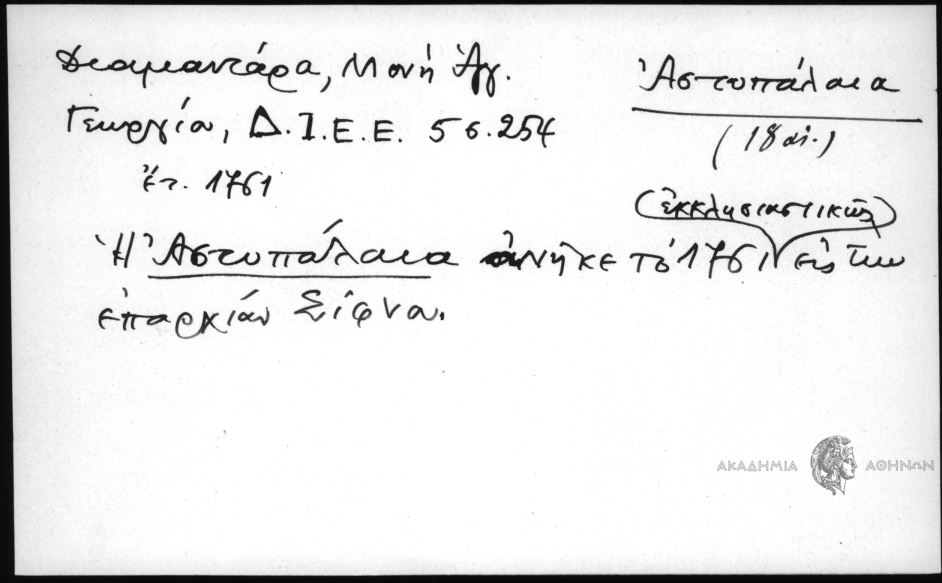 Διαμαντάρα, Μονή Ἁγ.
Γεωργίου, Δ.Ι.Ε.Ε. 5 σ. 254
ἔτ. 1761
Ἀστυπάλαια
(18 αἰ.)
(ἐκκλησιαστικῶς)
Ἡ Ἀστυπάλαια ἀνῆκε τὸ 1761 εἰς τὴν
ἐπαρχίαν Σίφνου.
ΑΚΑΔΗΜΙΑ ΑΘΗΝΩΝ